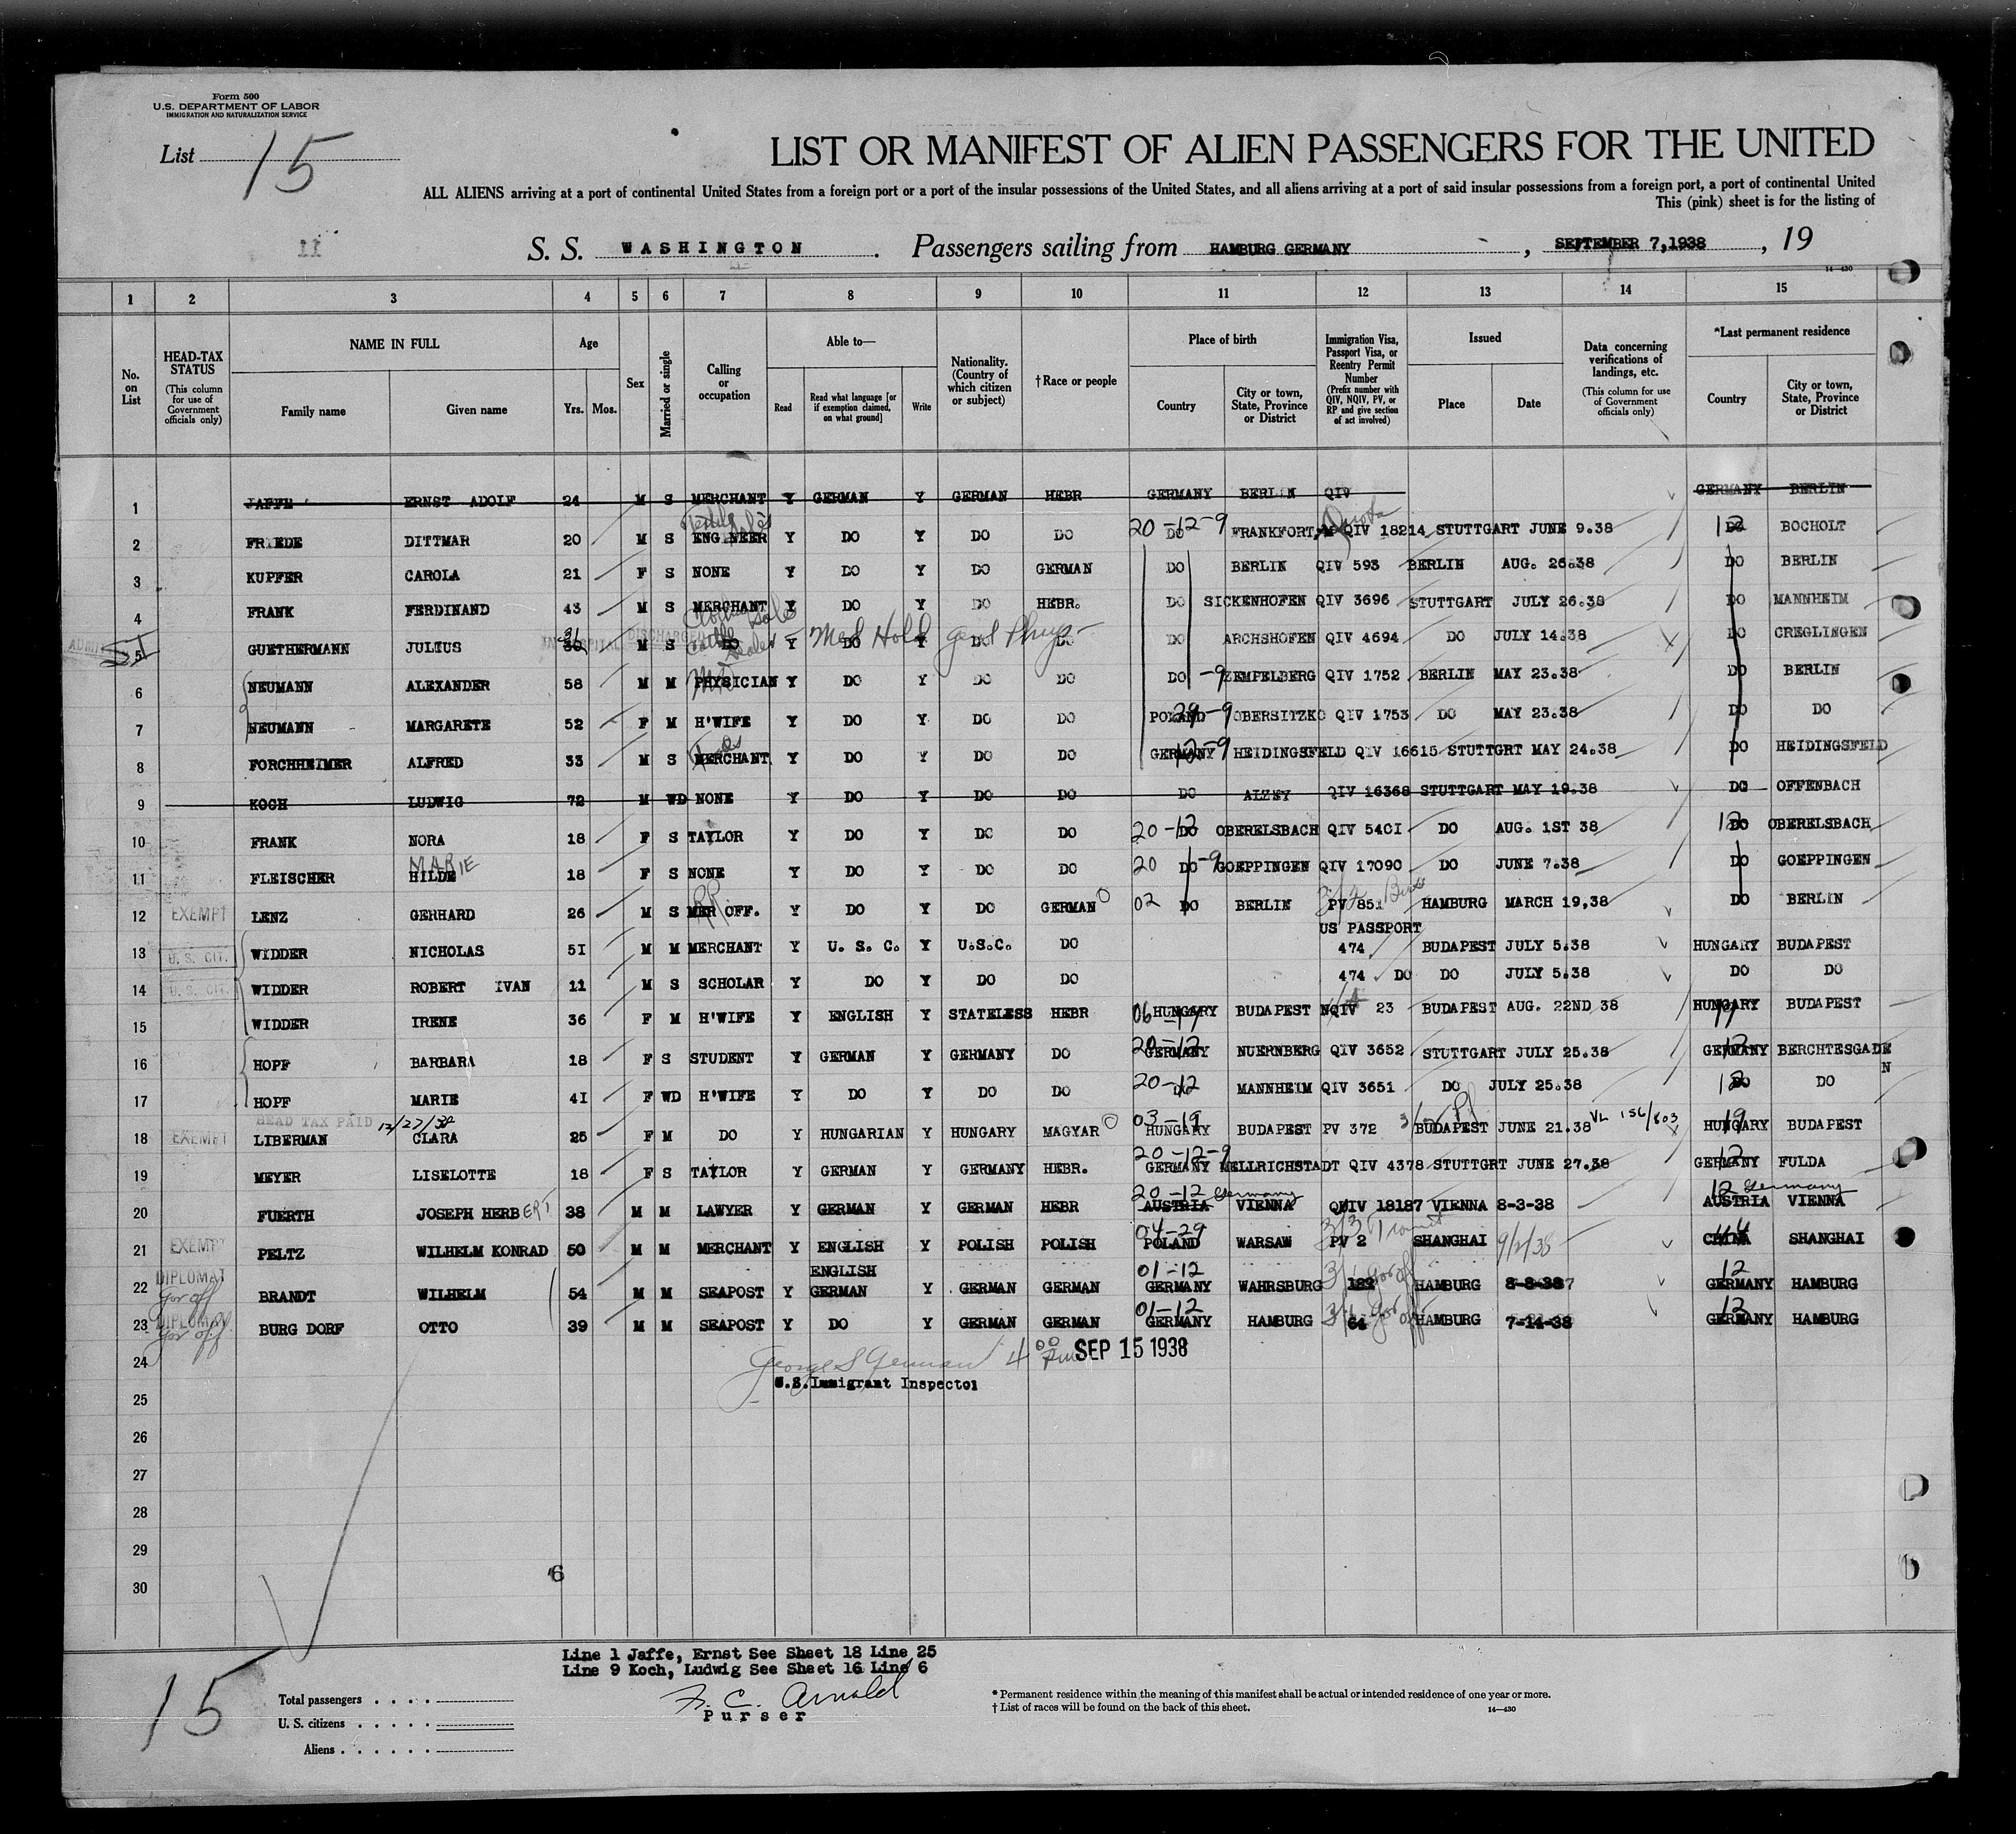 Form 500
U.S. DEPARTMENT OF LABOR
IMMIGRATION AND NATURALIZATION SERVICE
List 15
LIST OR MANIFEST OF ALIEN PASSENGERS FOR THE UNITED
ALL ALIENS arriving at a port of continental United States from a foreign port or a port of the insular possessions of the United States, and all aliens arriving at a port of said insular possessions from a foreign port, a port of continental United
This (pink) sheet is for the listing of
11
S. S. WASHINGTON. Passengers sailing from HAMBURG GERMANY, SEPTEMBER 7,1938, 19
14—430
1 2 3 4 5 6 7 8 9 10 11 12 13 14 15
No. on List
HEAD-TAX STATUS (This column for use of Government officials only)
NAME IN FULL
Family name Given name
Age
Yrs. Mos.
Sex
Married or single
Calling or occupation
Able to—
Read Read what language [or if exemption claimed, on what ground] Write
Nationality. (Country of which citizen or subject)
†Race or people
Place of birth
Country City or town, State, Province or District
Immigration Visa, Passport Visa, or Reentry Permit Number (Prefix number with QIV, NQIV, PV, or RP and give section of act involved)
Issued
Place Date
Data concerning verifications of landings, etc. (This column for use of Government officials only)
*Last permanent residence
Country City or town, State, Province or District
1 JAFFE ERNST ADOLF 24 M S MERCHANT Y GERMAN Y GERMAN HEBR GERMANY BERLIN QIV GERMANY BERLIN
2 FRIEDE DITTMAR 20 M S ENGINEER Y DO Y DO DO 20-12-9 DO FRANKFORT,M QIV 18214 STUTTGART JUNE 9.38 12 DO BOCHOLT
3 KUPFER CAROLA 21 F S NONE Y DO Y DO GERMAN DO BERLIN QIV 593 BERLIN AUG. 26.38 DO BERLIN
4 FRANK FERDINAND 43 M S MERCHANT Y DO Y DO HEBR. DO SICKENHOFEN QIV 3696 STUTTGART JULY 26.38 DO MANNHEIM
ADMITTED 5 GUETHERMANN JULIUS 30 31 IN HOSPITAL DISCHARGED M S DO Cattle dealer Y DO Med Hold Y DO DO DO ARCHSHOFEN QIV 4694 DO JULY 14.38 DO CREGLINGEN
6 NEUMANN ALEXANDER 58 M M PHYSICIAN Y DO Y DO DO DO -9 ZEMPELBERG QIV 1752 BERLIN MAY 23.38 DO BERLIN
7 NEUMANN MARGARETE 52 F M H'WIFE Y DO Y DO DO POLAND 29-9 OBERSITZKO QIV 1753 DO MAY 23.38 DO DO
8 FORCHHEIMER ALFRED 33 M S MERCHANT Y DO Y DO DO GERMANY 12-9 HEIDINGSFELD QIV 16615 STUTTGRT MAY 24.38 DO HEIDINGSFELD
9 KOCH LUDWIG 72 M WD NONE Y DO Y DO DO DO ALZEY QIV 16368 STUTTGART MAY 19.38 DO OFFENBACH
10 FRANK NORA 18 F S TAYLOR Y DO Y DO DO 20-12 DO OBERELSBACH QIV 540I DO AUG. 1ST 38 12 DO OBERELSBACH
11 FLEISCHER HILDE MARIE 18 F S NONE Y DO Y DO DO 20 DO -9 GOEPPINGEN QIV 17090 DO JUNE 7.38 DO GOEPPINGEN
12 EXEMPT LENZ GERHARD 26 M S MER OFF. Y DO Y DO GERMAN 02 DO BERLIN PV 851 HAMBURG MARCH 19,38 DO BERLIN
US PASSPORT
13 U. S. CIT. WIDDER NICHOLAS 5I M M MERCHANT Y U. S. C. Y U.S.C. DO 474 BUDAPEST JULY 5.38 HUNGARY BUDAPEST
14 U. S. CIT. WIDDER ROBERT IVAN 11 M S SCHOLAR Y DO Y DO DO 474 DO DO JULY 5.38 DO DO
15 WIDDER IRENE 36 F M H'WIFE Y ENGLISH Y STATELESS HEBR 06-19 HUNGARY BUDAPEST NQIV 23 BUDAPEST AUG. 22ND 38 HUNGARY 19 BUDAPEST
16 HOPF BARBARA 18 F S STUDENT Y GERMAN Y GERMANY DO 20-12 GERMANY NUERNBERG QIV 3652 STUTTGART JULY 25.38 GERMANY 12 BERCHTESGADEN
17 HOPF MARIE 4I F WD H'WIFE Y DO Y DO DO 20-12 DO MANNHEIM QIV 3651 DO JULY 25.38 12 DO DO
HEAD TAX PAID 12/27/38
18 EXEMPT LIBERMAN CLARA 25 F M DO Y HUNGARIAN Y HUNGARY MAGYAR 03-19 HUNGARY BUDAPEST PV 372 BUDAPEST JUNE 21.38 VL 156/803 HUNGARY 19 BUDAPEST
19 MEYER LISELOTTE 18 F S TAYLOR Y GERMAN Y GERMANY HEBR. 20-12-9 GERMANY MELLRICHSTADT QIV 4378 STUTTGRT JUNE 27.38 GERMANY 12 FULDA
20 FUERTH JOSEPH HERBERT 38 M M LAWYER Y GERMAN Y GERMAN HEBR 20-12 Germany AUSTRIA VIENNA QNIV 18187 VIENNA 8-3-38 12 Germany AUSTRIA VIENNA
21 EXEMPT PELTZ WILHELM KONRAD 50 M M MERCHANT Y ENGLISH Y POLISH POLISH 04-29 POLAND WARSAW 3/3 Transit PV 2 SHANGHAI 9/2/38 CHINA SHANGHAI
22 DIPLOMAT Gov off BRANDT WILHELM 54 M M SEAPOST Y ENGLISH GERMAN Y GERMAN GERMAN 01-12 GERMANY WAHRSBURG 3/1 Gov off 182 HAMBURG 8-8-38 GERMANY 12 HAMBURG
23 DIPLOMAT Gov off BURG DORF OTTO 39 M M SEAPOST Y DO Y GERMAN GERMAN 01-12 GERMANY HAMBURG 3/1 Gov off 64 HAMBURG 7-14-38 GERMANY 12 HAMBURG
24 George S German 4 00 Pm SEP 15 1938
U.S.Immigrant Inspector
25
26
27
28
29
30
6
Line 1 Jaffe, Ernst See Sheet 18 Line 25
Line 9 Koch, Ludwig See Sheet 16 Line 6
15
F. C. Arnold
Purser
Total passengers . . . .
U. S. citizens . . . . .
Aliens . . . . . .
* Permanent residence within the meaning of this manifest shall be actual or intended residence of one year or more.
† List of races will be found on the back of this sheet.
14—430